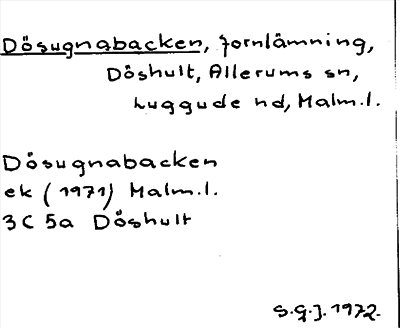 Dösugnabacken, fornlämning,
Döshult, Allerums sn,
Luggude hd, Malm.l.
Dösugnabacken
ek (1971) Malm.l.
3C 5a Döshult
S.G.J. 1972.